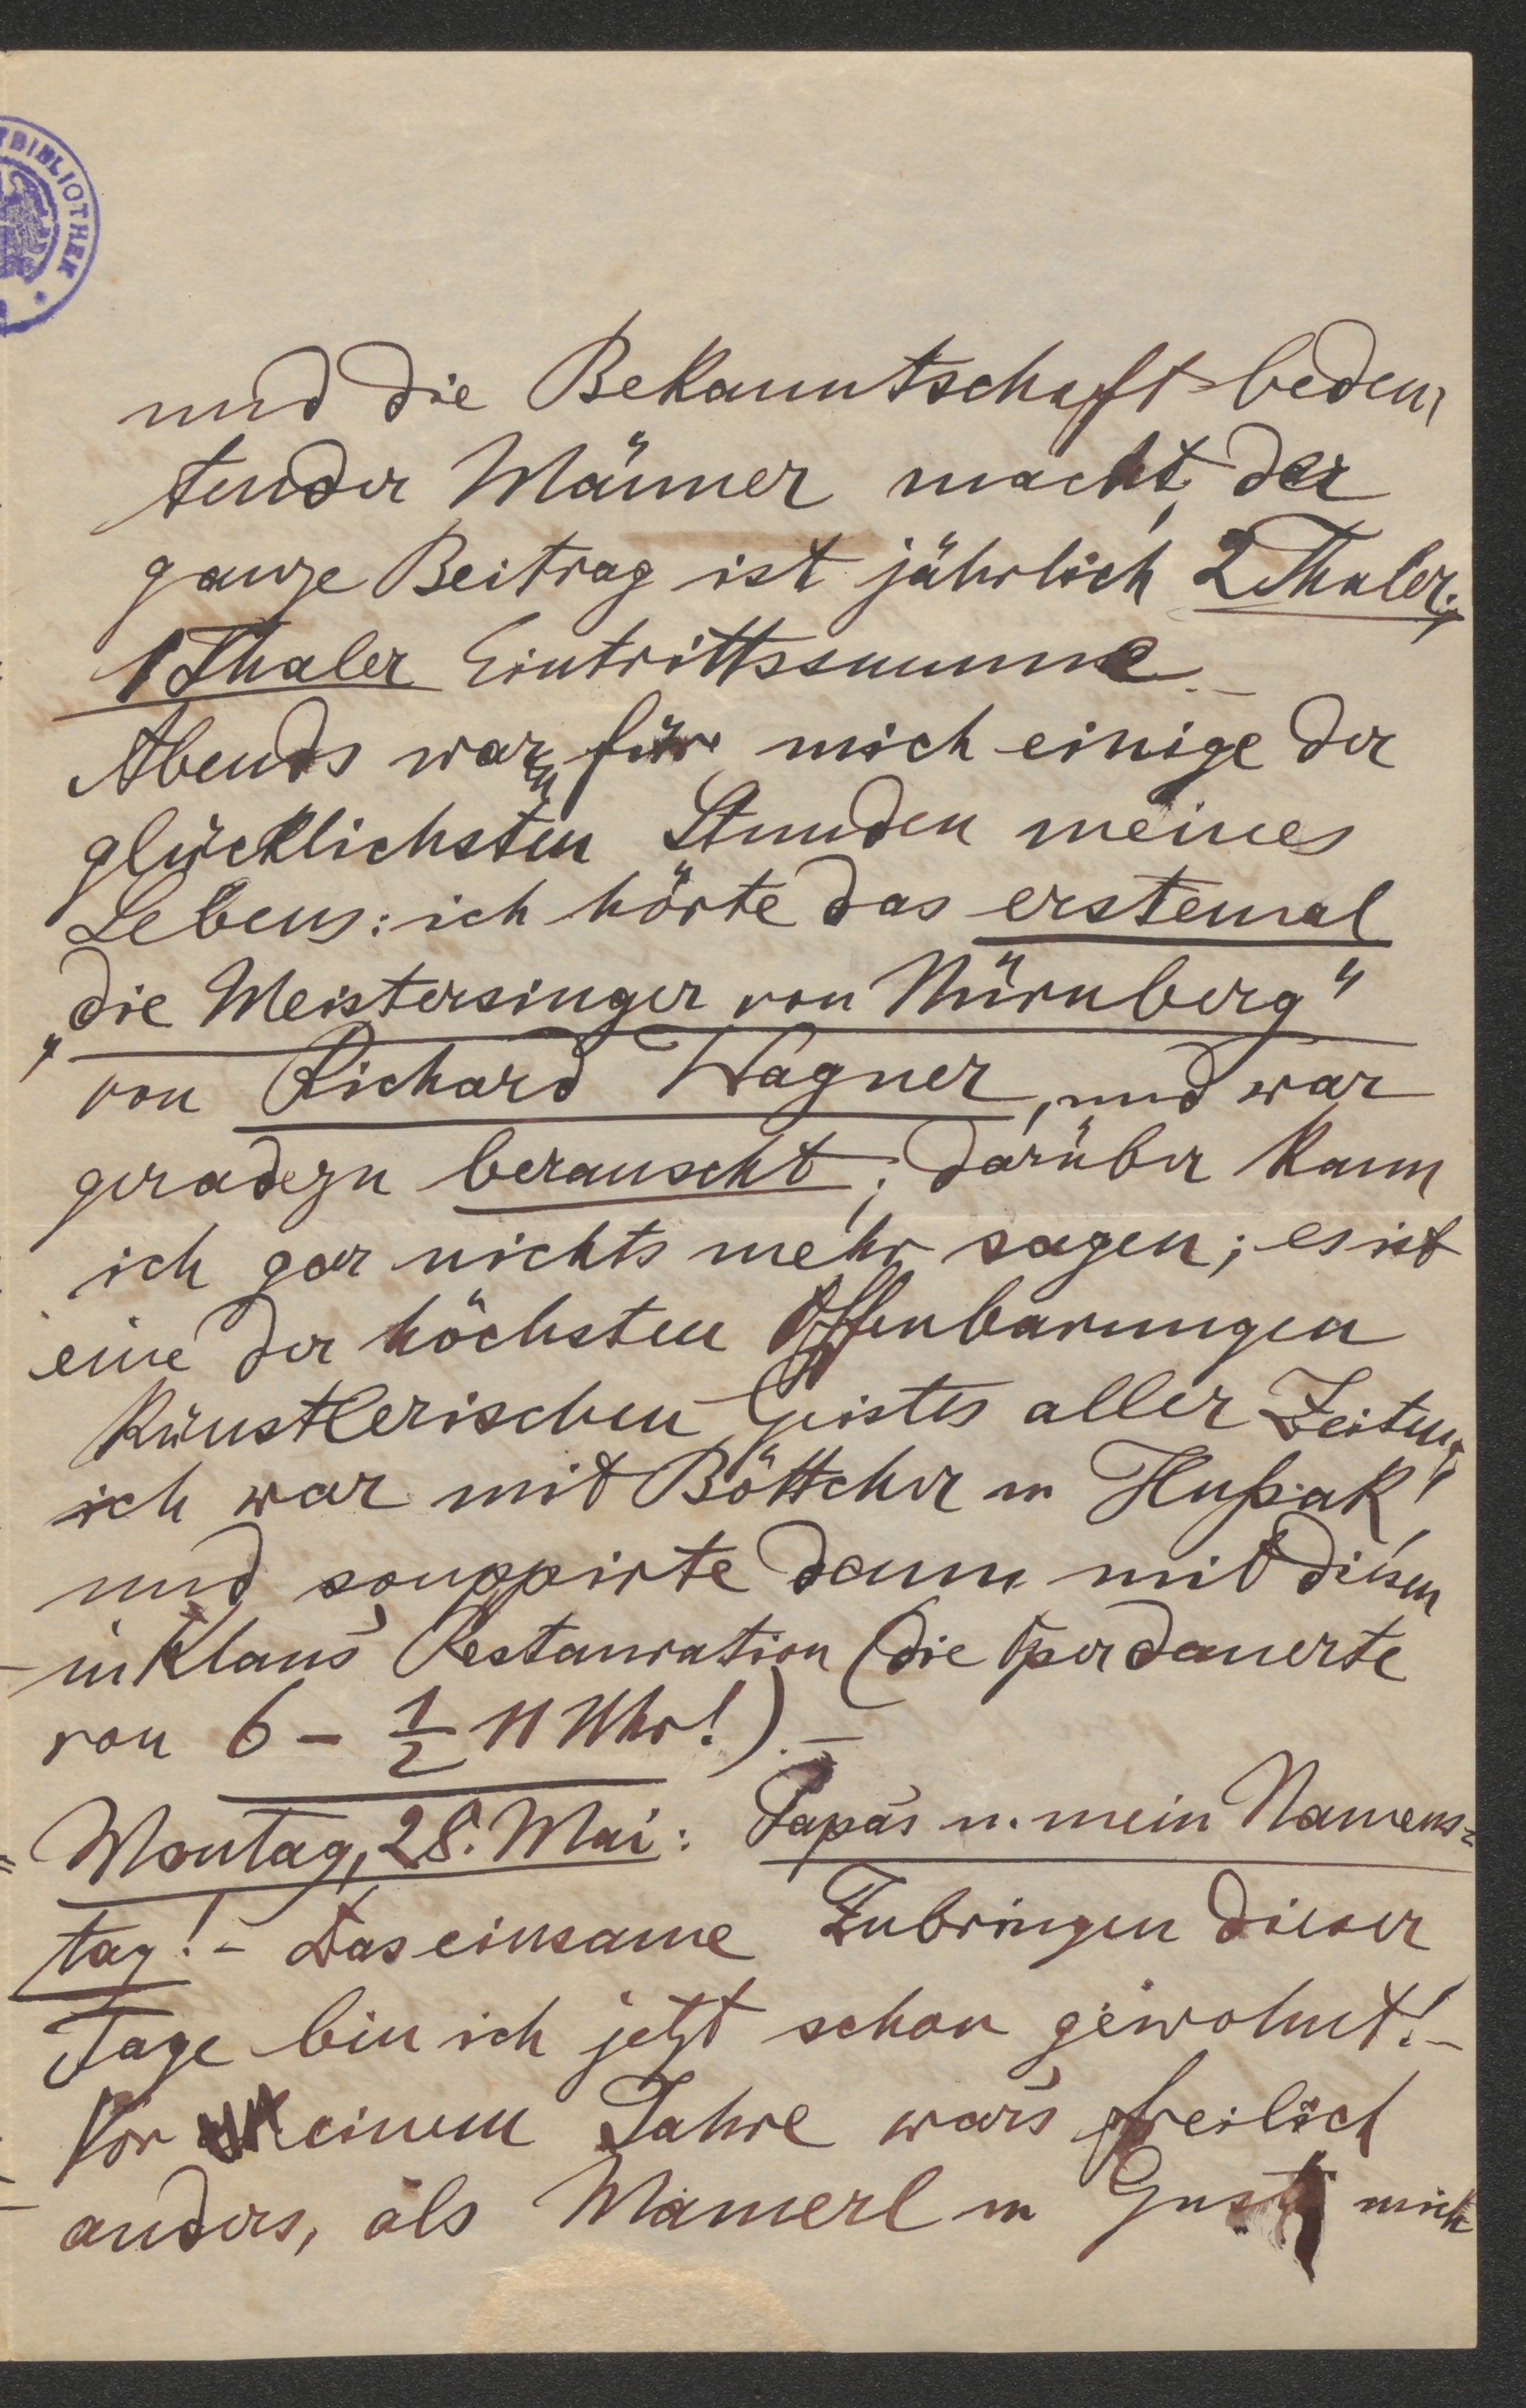 TBIBLIOTHEK *
und die Bekanntschaft bedeu,
tender Männer macht, der
ganze Beitrag ist jährlich 2 Thaler;
1 Thaler Eintrittssumme. –
Abends waren für mich einige der
glücklichsten Stunden meines
Lebens: ich hörte das erstemal
„die Meistersinger von Nürnberg"
von Richard Wagner, und war
geradezu berauscht; darüber kann
ich gar nichts mehr sagen; es ist
eine der höchsten Offenbarungen
künstlerischen Geistes aller Zeiten,
ich war mit Böttcher u Hußak!
und souppirte dann mit diesen
in Klaus' Restauration (die Oper dauerte
von 6 – 1/2 11 Uhr!). –
Montag, 28. Mai: Papa's u. mein Namens=
tag! – Das einsame Zubringen dieser
Tage bin ich jetzt schon gewohnt! –
Vor einem Jahre war's freilich
anders, als Mamerl u Gusti mich